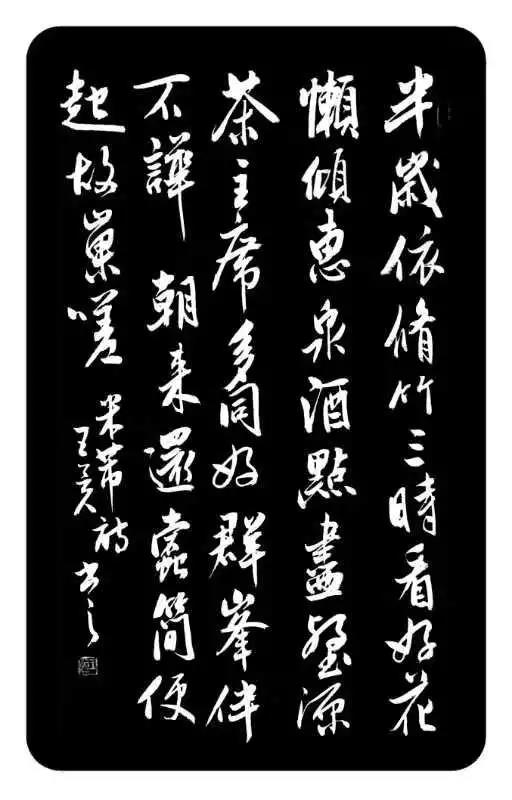 半歲依脩竹三時看好花
懶傾惠泉酒點盡壑源
茶主席多同好群峯伴
不譁朝来還蠹簡便
起故巢嗟
米芾詩
书之